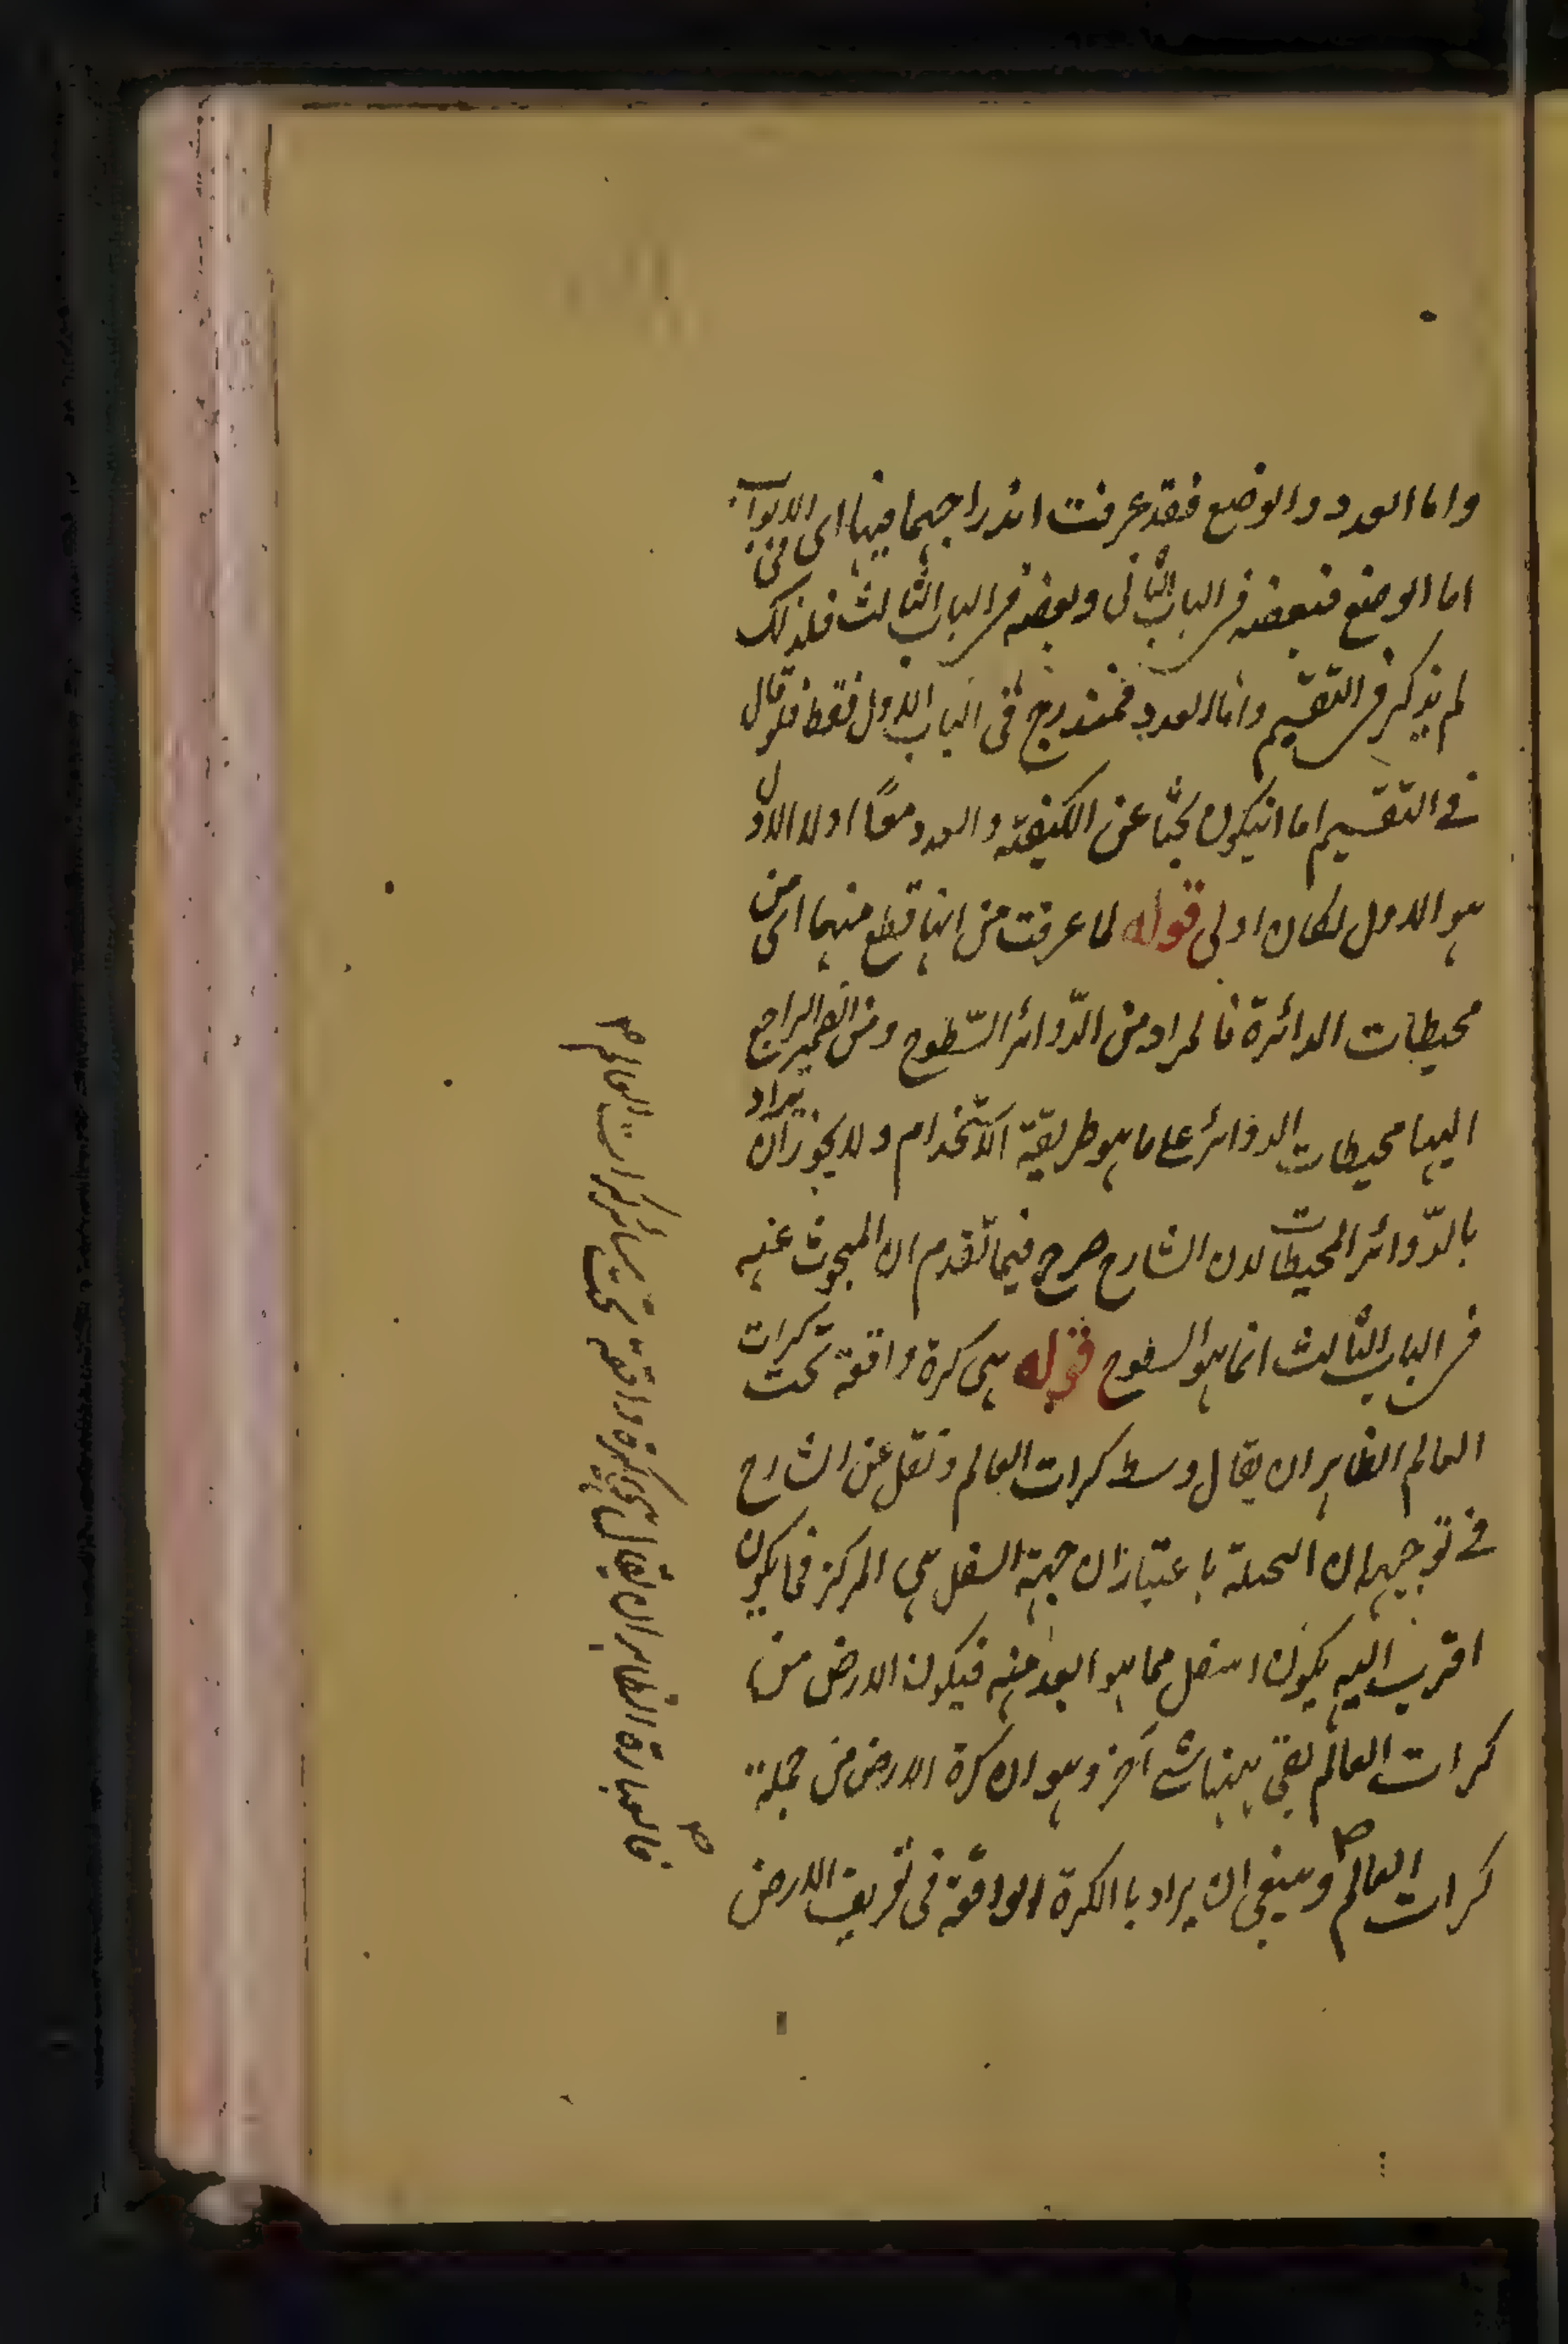 واما العدد والوضع فقد عرفت اندراجهما فيها اى فى الابواب
اما الوضع فبعضه فى الباب الثانى وبعضه فى الباب الثالث فلذلك
لم يذكر فى التقسيم واما العدد فمندرج فى الباب الاول فقط فلو قال
فى التقسيم اما ان يكون بحثا عن الكيفية والعدد معًا او لا الاول
هو الاول لكان اولى قوله لما عرفت من انها قطع منهما اى من
محيطات الدائرة فالمراد من الدّوائر السّطوح ومن الضمير الراجع
اليها محيطات الدوائر على ما هو طريقة الاستخدام ولا يجوز ان يراد
بالدّوائر المحيطات لان الشارح صرح فيما تقدم ان المبحوث عنه
فى الباب الثالث انما هو السطوح قوله هى كرة واقعة تحت كرات
العالم الظاهر ان يقال وسط كرات العالم ونقل عن الشارح
فى توجيهه ان التحتية باعتبار ان جهة السفل هى المركز فما يكون
اقرب اليه يكون اسفل مما هو ابعد منه فيكون الارض من
كرات العالم بقى ههنا شئ آخر وهو ان كرة الارض من جملة
كرات العالم وينبغى ان يراد بالكرة الواقعة فى تعريف الارض
فالعبارة الظاهرة ان يقال هى كرة واقعة تحت سائر كرات العالم صح